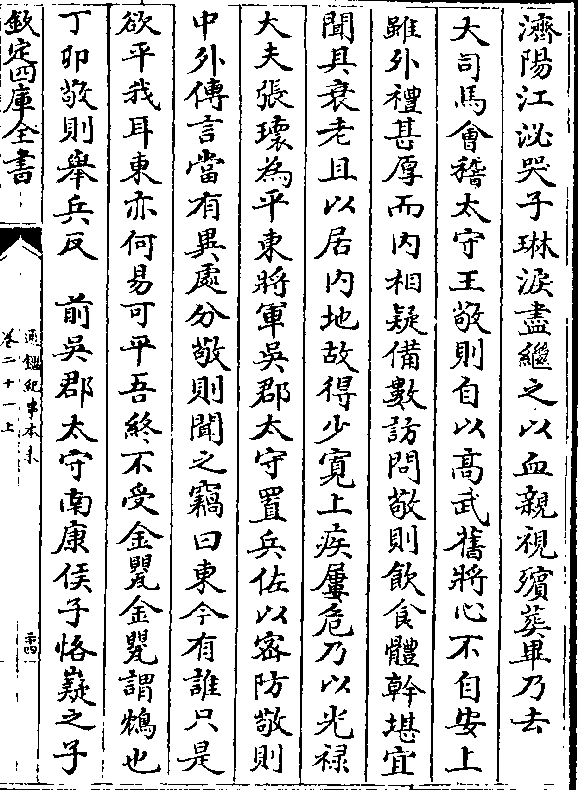 濟陽江泌哭子琳淚盡繼之以血親視殯葬畢乃去
大司馬會稽太守王敬則自以高武舊將心不自安上
雖外禮甚厚而内相疑備數訪問敬則飲食體幹堪宜
聞其衰老且以居内地故得少寛上疾屢危乃以光禄
大夫張瓌為平東將軍吳郡太守置兵佐以宻防敬則
中外傳言當有異處分敬則聞之竊曰東今有誰只是
欲平我耳東亦何易可平吾終不受金甖金甖謂鴆也
丁卯敬則舉兵反　前吳郡太守南康侯子恪嶷之子
欽定四庫全書
通鑑紀事本末
卷二十一上
二十四